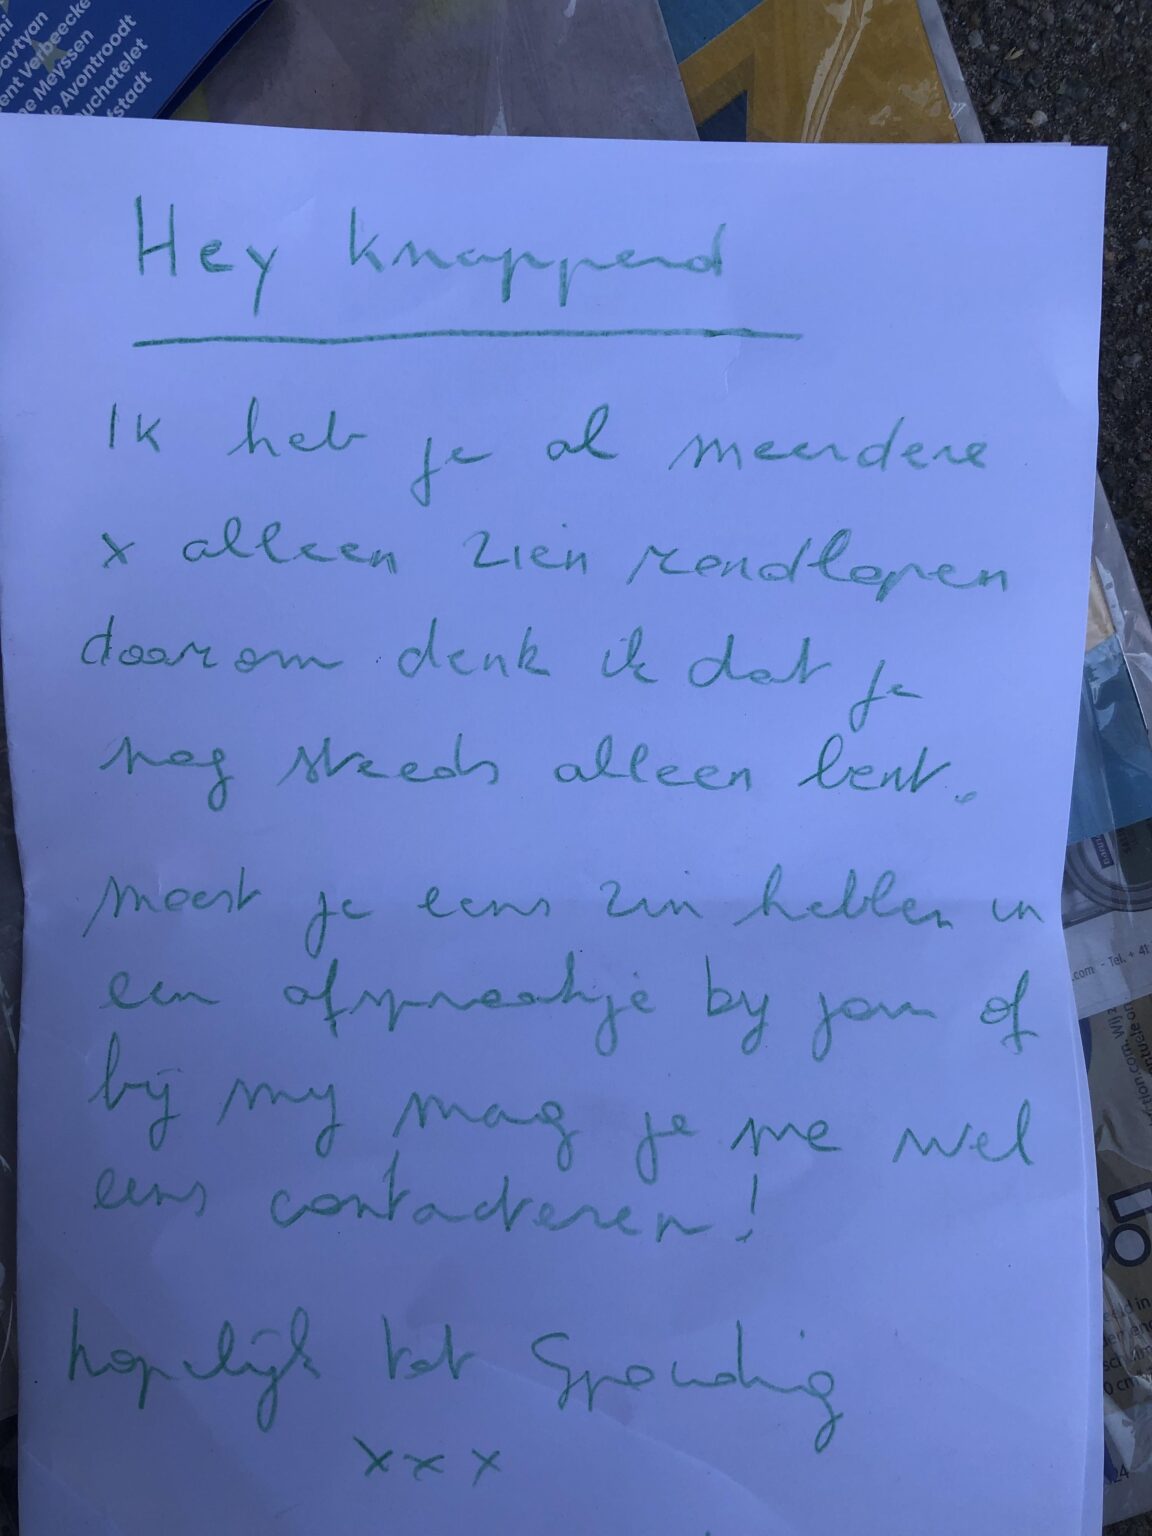 Davtyan
ent Verbeecke
ne Meyssen
le Avontroodt
uchatelet
fstadt
Hey knapperd
Ik heb je al meerdere
x alleen zien rondlopen
daarom denk ik dat je
nog steeds alleen bent.
moest je eens zin hebben in
een afspraakje by jou of
bij my mag je me wel
eens contacteren!
hopelijk tot spoedig
xxx
.com - Tel. + 41
ction.com. Wij z
24